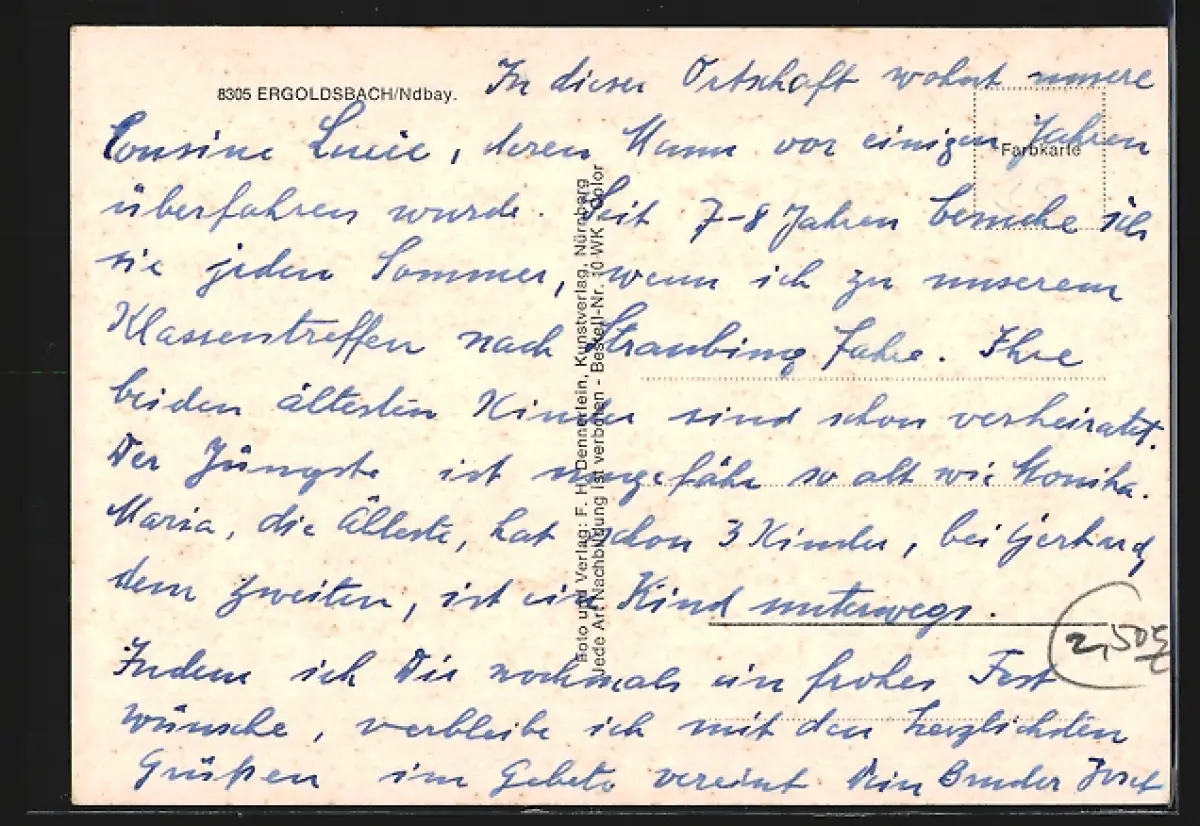 8305 ERGOLDSBACH/Ndbay.
In dieser Ortschaft wohnt unsere
Farbkarte
Cousine Lucie, deren Mann vor einigen Jahren
überfahren wurde. Seit 7-8 Jahren besuche ich
sie jeden Sommer, wenn ich zu unserem
Klassentreffen nach Straubing fahre. Ihre
beiden ältesten Kinder sind schon verheiratet.
Der Jüngste ist ungefähr so alt wie Monika.
Maria, die Älteste, hat schon 3 Kinder, bei Gerhard,
dem zweiten, ist ein Kind unterwegs.
2,50
Indem ich Dir nochmals ein frohes Fest
wünsche, verbleibe ich mit den herzlichsten
Grüßen im Gebete vereint Dein Bruder Josef
Foto und Verlag: F. H. Dennerlein, Kunstverlag, Nürnberg
Jede Art Nachbildung ist verboten - Bestell-Nr. 10 WK Color